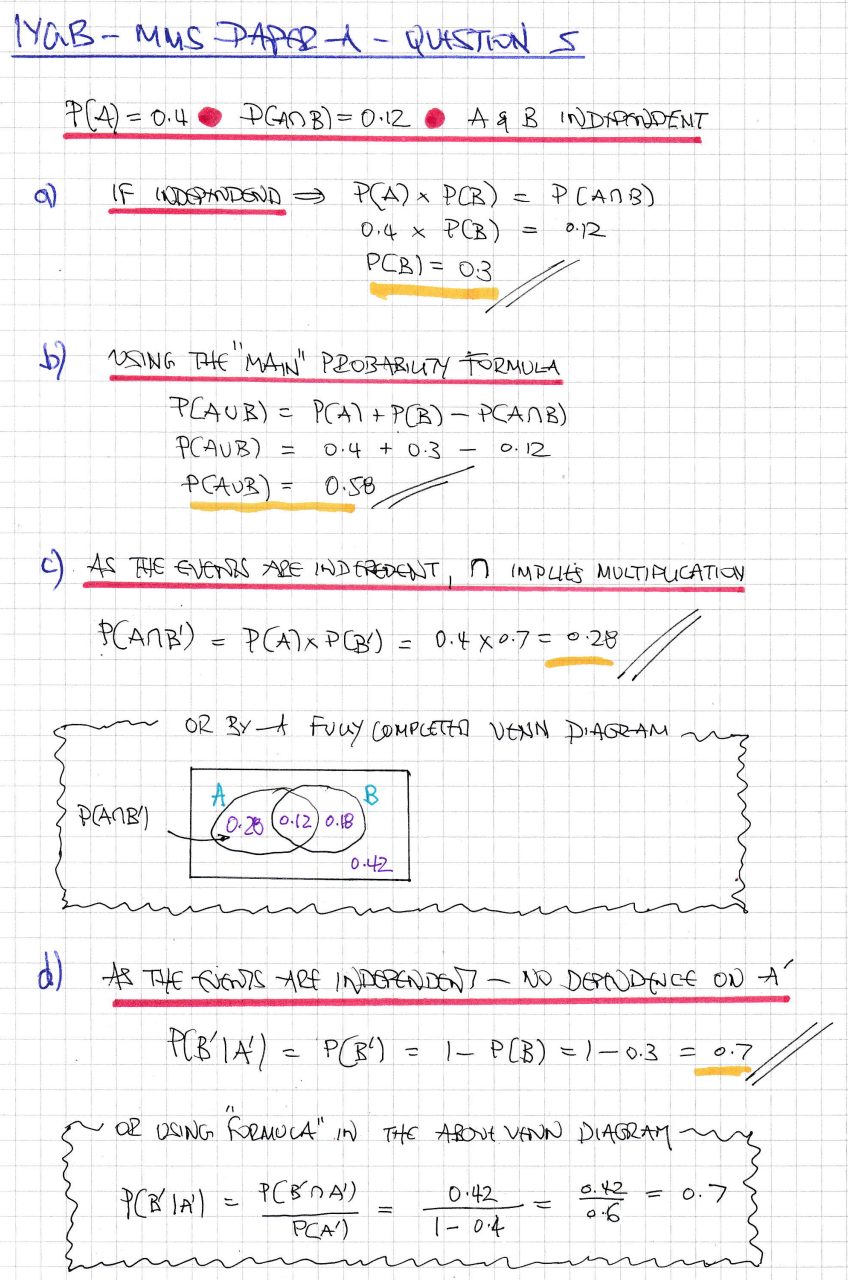 IYGB - MMS PAPER A - QUESTION 5
P(A) = 0.4 ● P(A∩B) = 0.12 ● A & B INDEPENDENT
a) IF INDEPENDENT ⇒ P(A) × P(B) = P(A∩B)
0.4 × P(B) = 0.12
P(B) = 0.3
b) USING THE "MAIN" PROBABILITY FORMULA
P(A∪B) = P(A) + P(B) - P(A∩B)
P(A∪B) = 0.4 + 0.3 - 0.12
P(A∪B) = 0.58
c) AS THE EVENTS ARE INDEPEDENT, ∩ IMPLIES MULTIPLICATION
P(A∩B') = P(A) × P(B') = 0.4 × 0.7 = 0.28
OR BY A FULLY COMPLETED VENN DIAGRAM
A B
P(A∩B') 0.28 0.12 0.18
0.42
d) AS THE EVENTS ARE INDEPENDENT - NO DEPENDENCE ON A'
P(B'|A') = P(B') = 1 - P(B) = 1 - 0.3 = 0.7
OR USING "FORMULA" IN THE ABOVE VENN DIAGRAM
P(B'|A') = P(B'∩A') / P(A') = 0.42 / 1 - 0.4 = 0.42 / 0.6 = 0.7